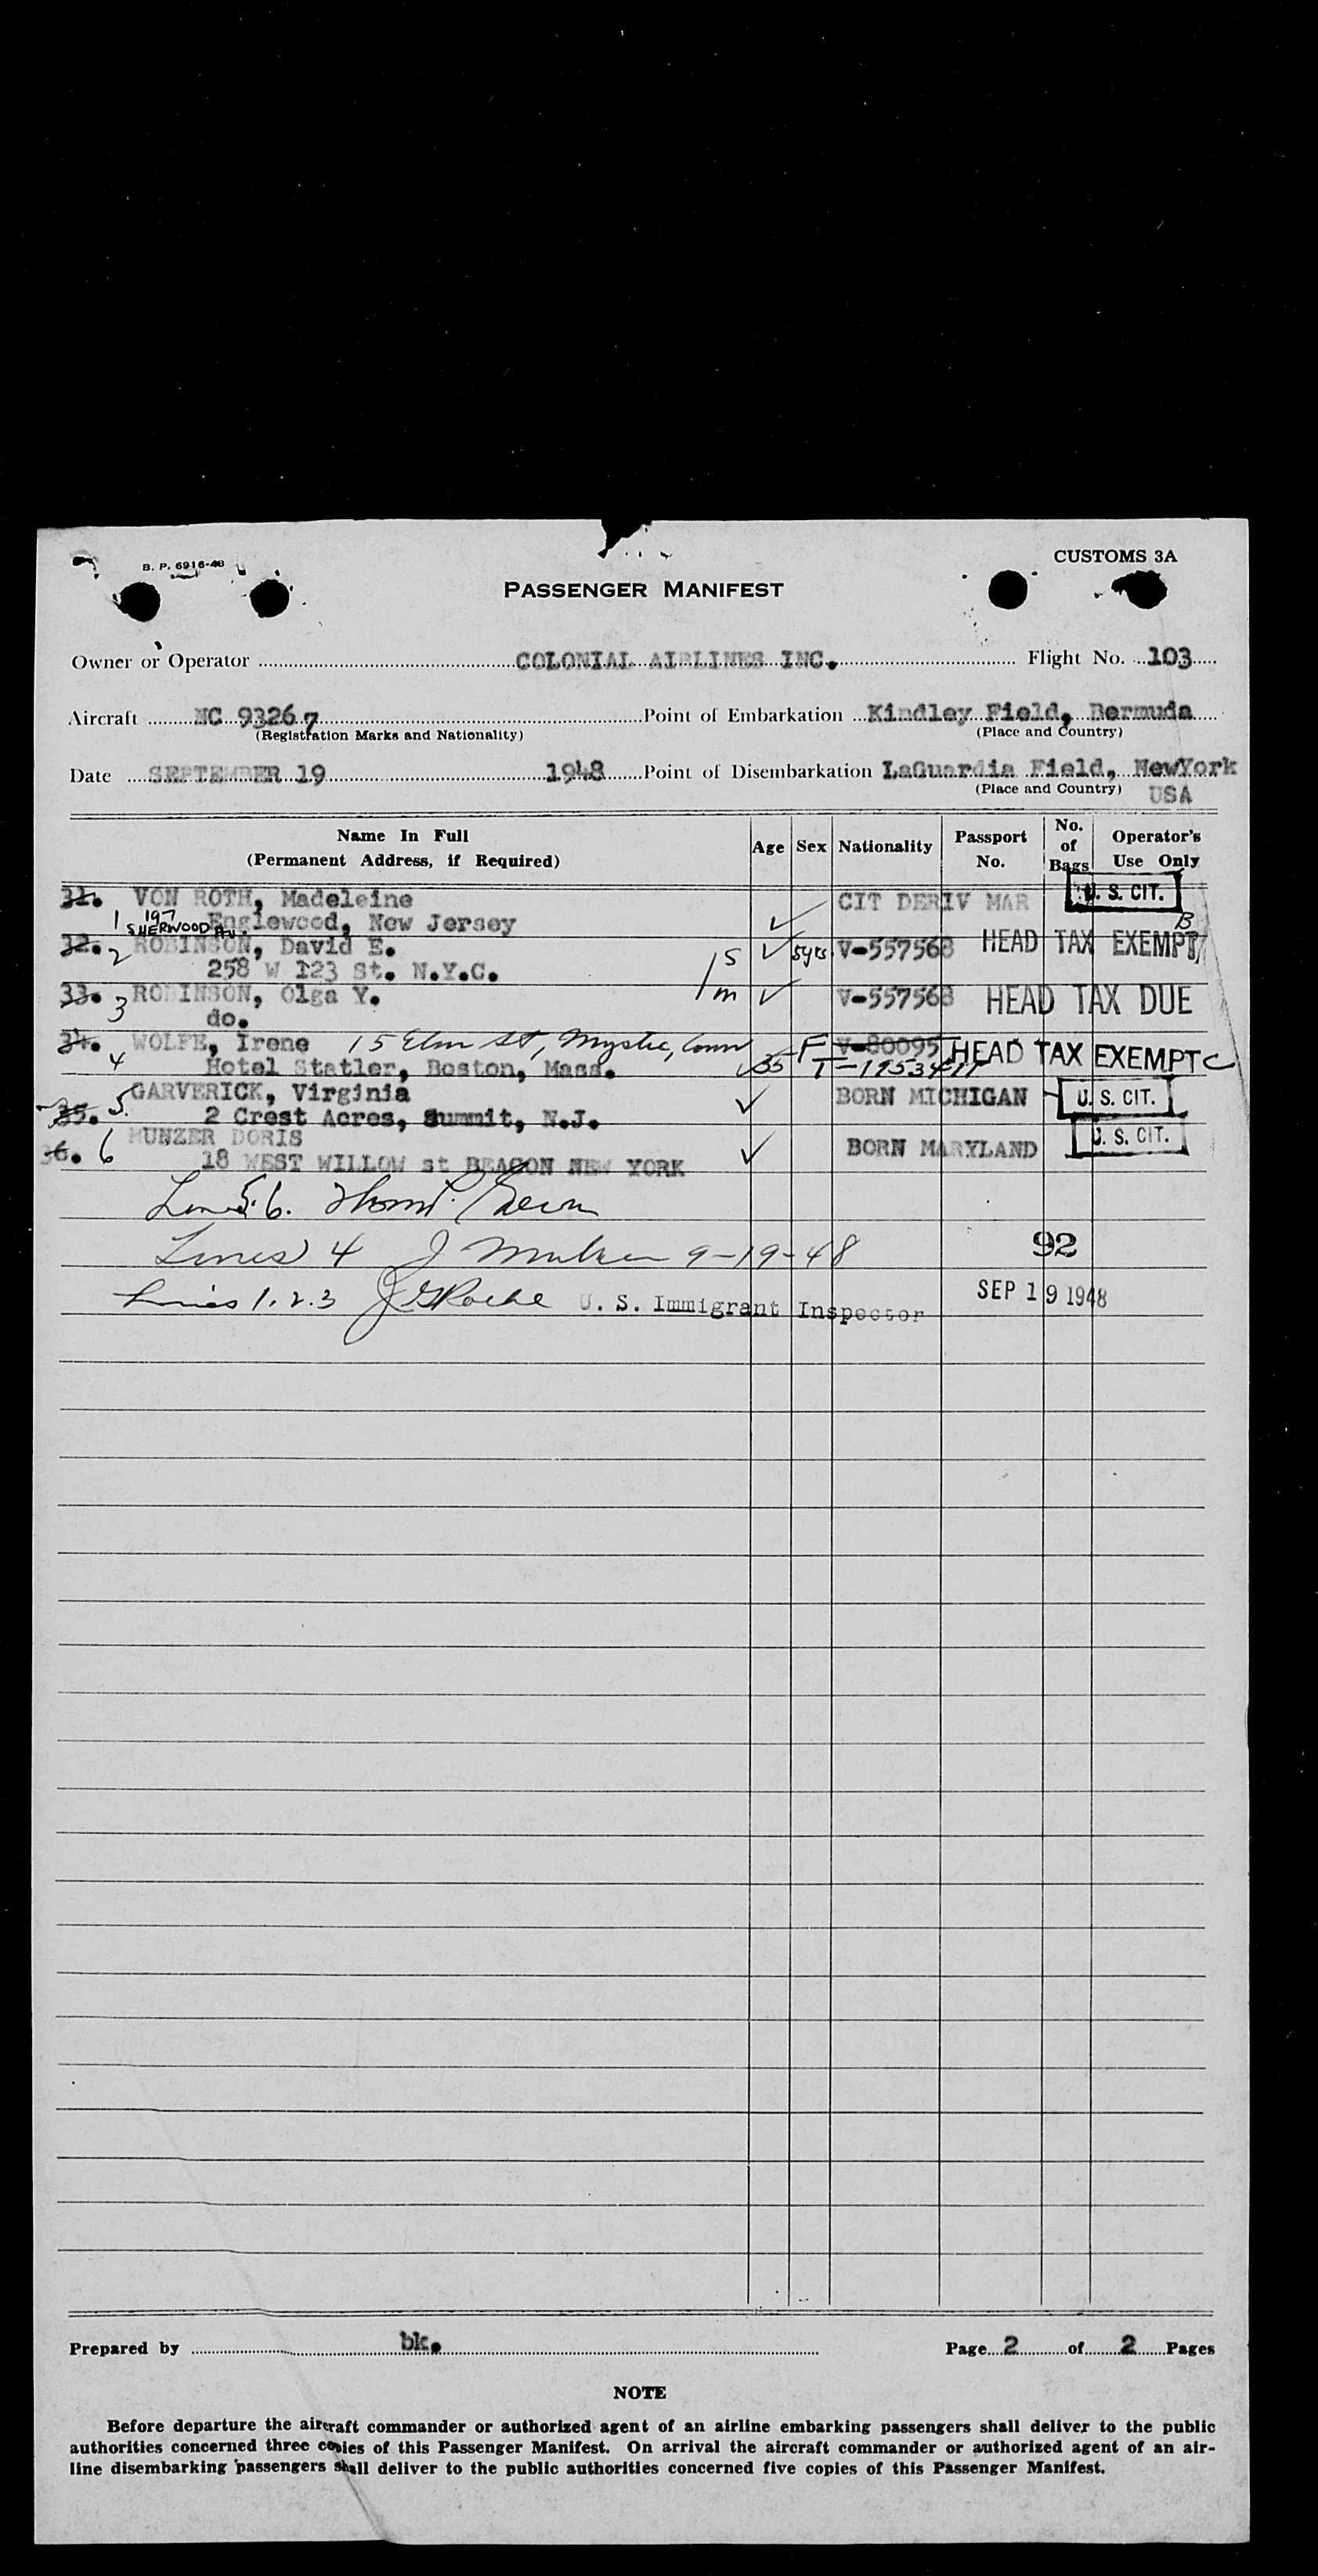 B. P. 6916-48
CUSTOMS 3A
PASSENGER MANIFEST
Owner or Operator COLONIAL AIRLINES INC. Flight No. 103
Aircraft NC 93267 Point of Embarkation Kindley Field, Bermuda
(Registration Marks and Nationality) (Place and Country)
Date SEPTEMBER 19 1948 Point of Disembarkation LaGuardia Field, NewYork
(Place and Country) USA
Name In Full (Permanent Address, if Required) Age Sex Nationality Passport No. No. of Bags Operator's Use Only
31. VON ROTH, Madeleine CIT DERIV MAR U. S. CIT.
1 197 SHERWOOD Av. Englewood, New Jersey ✓ B
32. 2 ROBINSON, David E. S ✓ 5yrs V-557568 HEAD TAX EXEMPT
258 W 123 St. N.Y.C.
33. 3 ROBINSON, Olga Y. m ✓ V-557568 HEAD TAX DUE
do.
34. WOLFE, Irene 15 Elm St, Mystic, Conn F V-80095 HEAD TAX EXEMPT C
4 Hotel Statler, Boston, Mass. ✓ 35
GARVERICK, Virginia BORN MICHIGAN U. S. CIT.
35. 5. 2 Crest Acres, Summit, N.J. ✓
MUNZER DORIS BORN MARYLAND U. S. CIT.
36. 6 18 WEST WILLOW st BEACON NEW YORK ✓
Lines 5. 6.
Lines 4 J 9-19-48 92
Lines 1. 2. 3 J G Roche U. S. Immigrant Inspector SEP 19 1948
Prepared by bk. Page 2 of 2 Pages
NOTE
Before departure the aircraft commander or authorized agent of an airline embarking passengers shall deliver to the public
authorities concerned three copies of this Passenger Manifest. On arrival the aircraft commander or authorized agent of an air-
line disembarking passengers shall deliver to the public authorities concerned five copies of this Passenger Manifest.